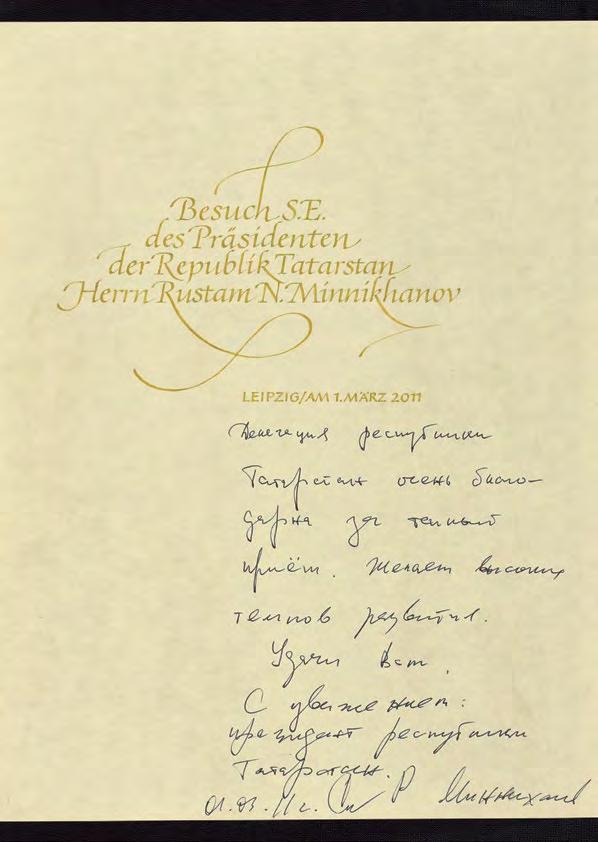 Besuch S.E.
des Präsidenten
der Republik Tatarstan
Herrn Rustam N. Minnikhanov
LEIPZIG/AM 1. MÄRZ 2011
Делегация республики
Татарстан очень благо-
дарна за теплый
приём. Желаем высоких
темпов развития.
Удачи Вам.
С уважением:
президент республики
Татарстан.
01.03.11г. Р Минниханов